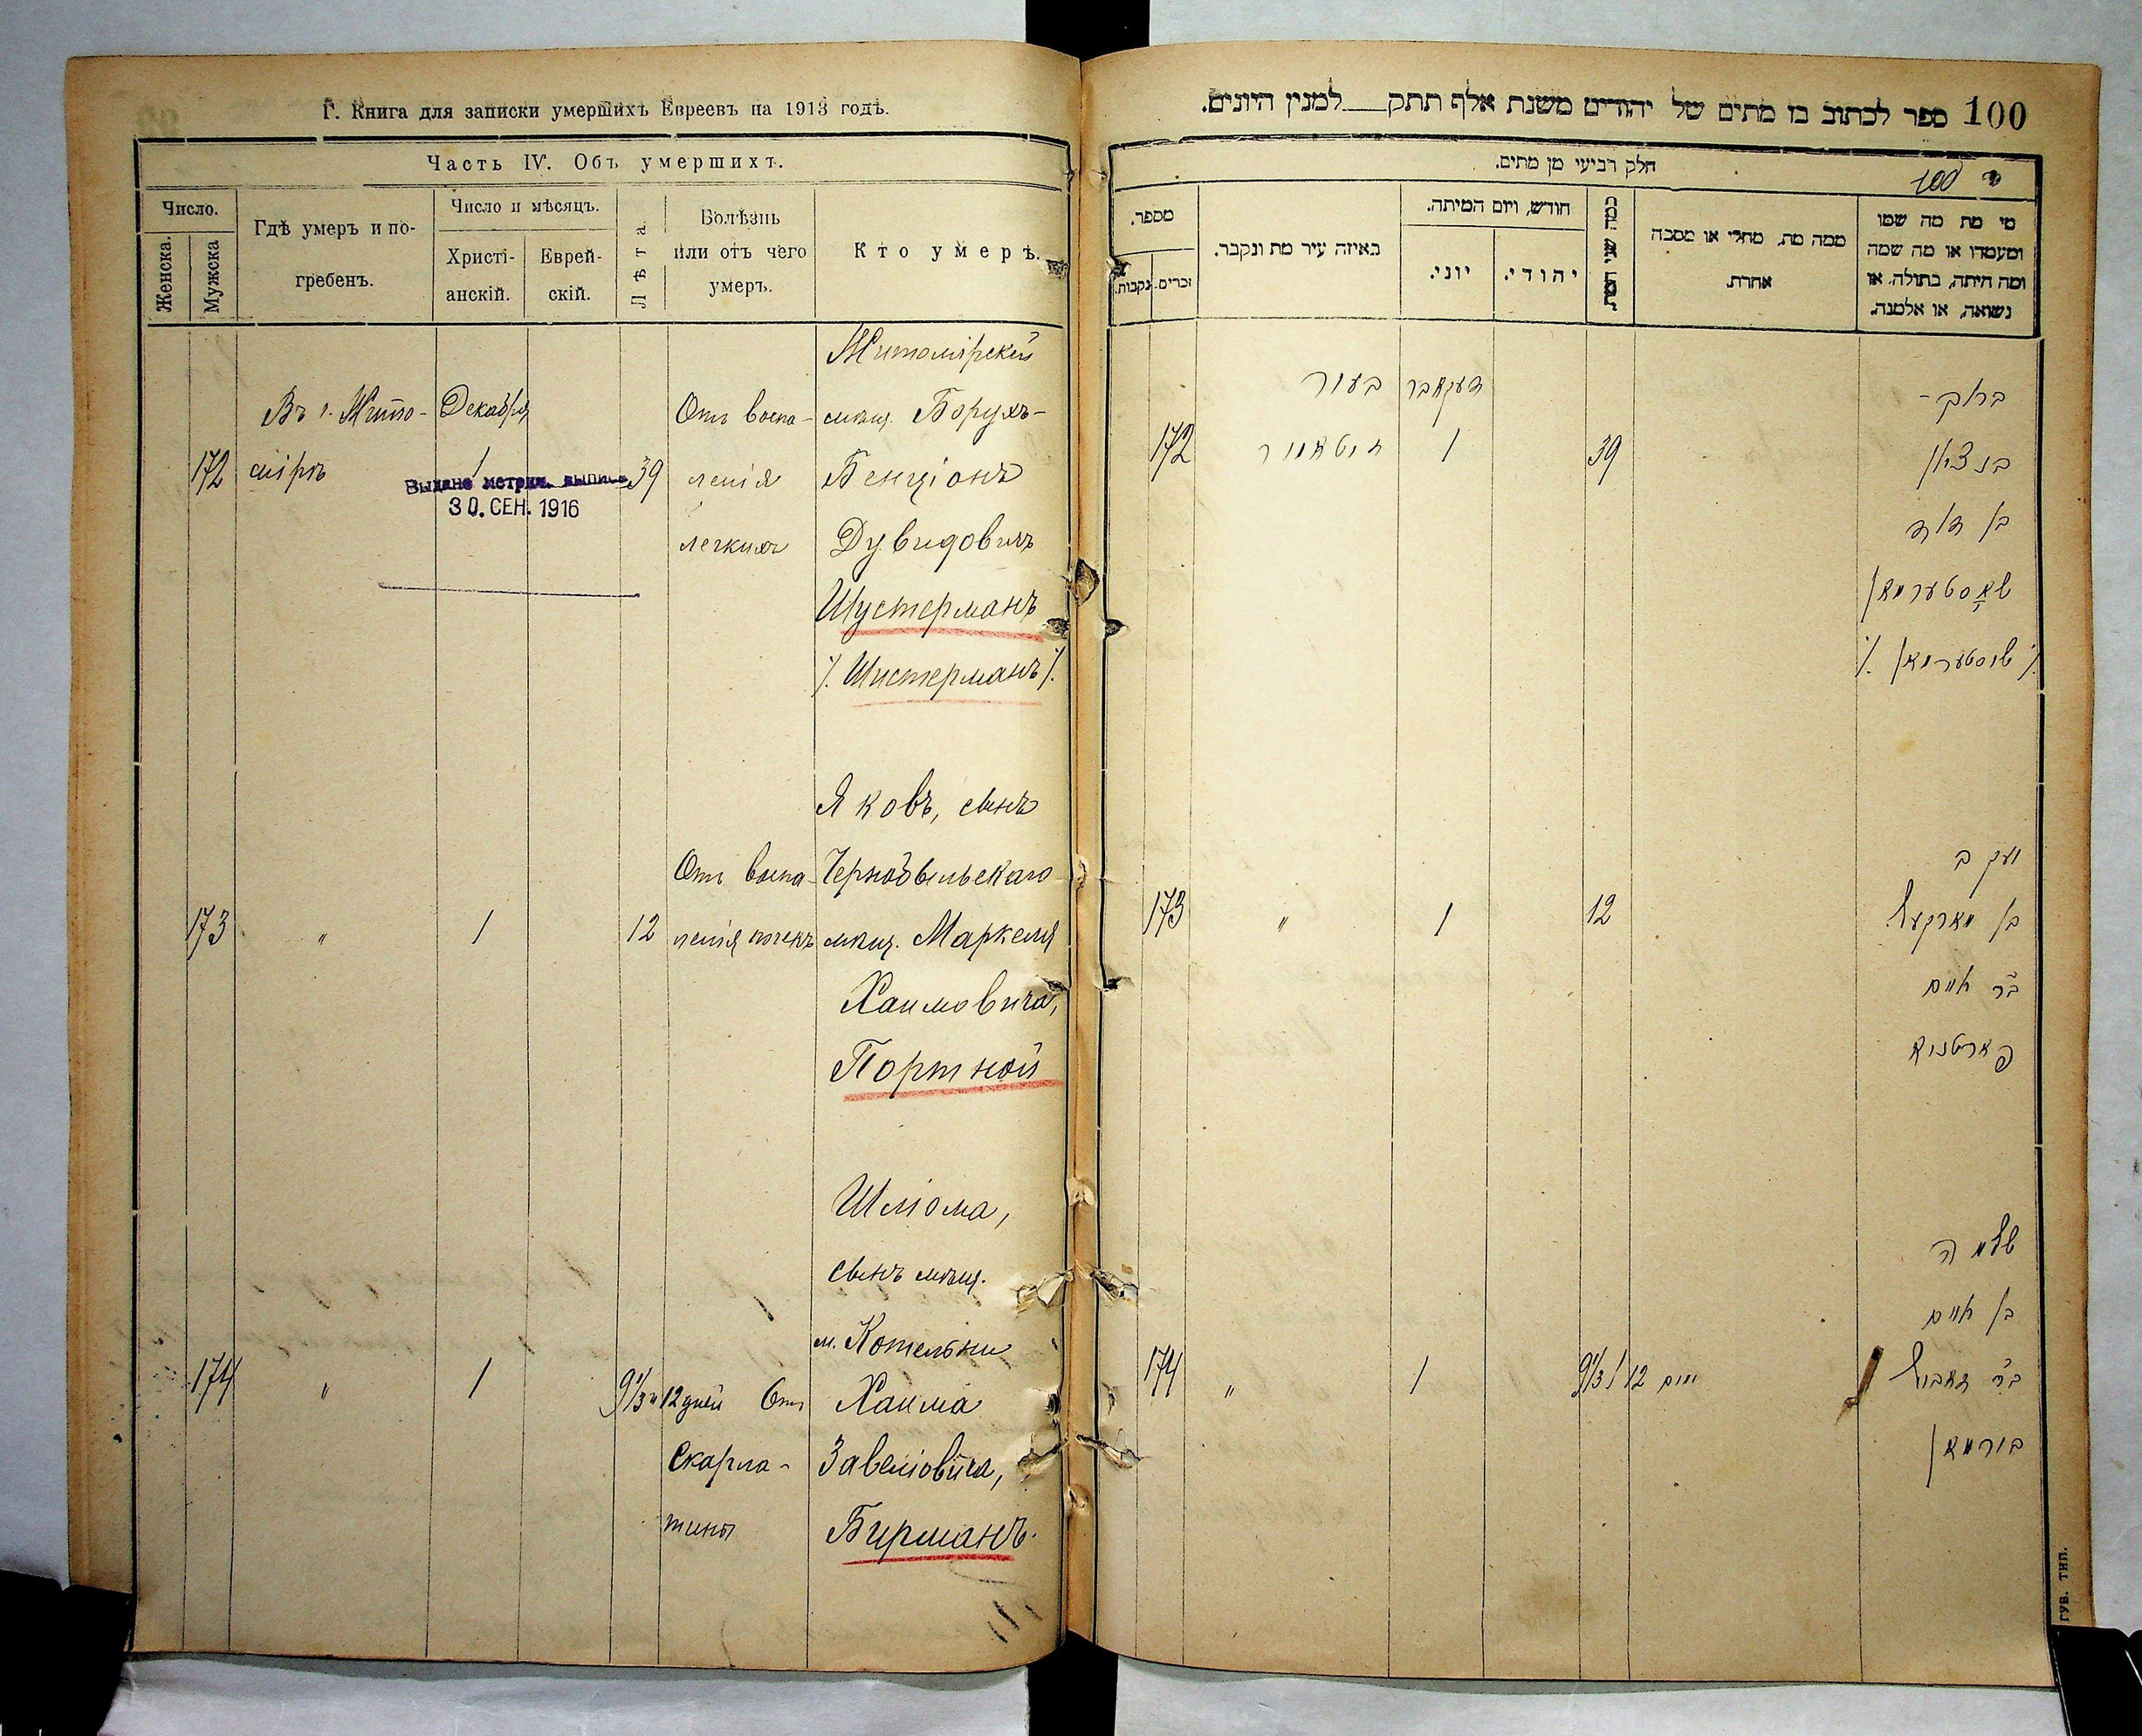 Г. Книга для записки умершихъ Евреевъ на 1913 годъ.
Часть IV. Объ умершихъ.
Число.
Женска.
Мужска
Гдѣ умеръ и по-
гребенъ.
Число и мѣсяцъ.
Христі-
анскій.
Еврей-
скій.
Лѣта.
Болѣзнь
или отъ чего
умеръ.
Кто умеръ.
172
Въ г. Жито-
мірѣ
Декабря
1
Выдана метрич. выпись
30. СЕН. 1916
39
Отъ воспа-
ленія
легкихъ
Житомірскій
мѣщ. Борухъ-
Бенціонъ
Дувидовичъ
Шустерманъ
/. Шистерманъ /.
173
"
1
12
Отъ воспа-
ленія почекъ
Яковъ, сынъ
Чернобыльскаго
мѣщ. Маркеля
Хаимовича,
Портной
174
"
1
9 1/3 и 12 дней
Отъ
Скарла-
тины
Шліома,
сынъ мѣщ.
м. Котельни
Хаима
Завеліовича,
Бирманъ.
100 ספר לכתוב בו מתים של יהודים משנת אלף תתק למנין היונים.
חלק רביעי מן מתים.
100
מספר.
נקבות.
זכרים.
באיזה עיר מת ונקבר.
חודש, ויום המיתה.
יוני.
יהודי.
כמה שני
ממה מת, מחלי או מסבה
אחרת.
מי מת מה שמו
ומעמדו או מה שמה
ומה היתה, בתולה, או
נשואה, או אלמנה.
172
בעיר
זיטאמיר
דעקאבר
1
39
ברוך-
בן ציון
בן דוד
שוסטערמאן
/. שיסטערמאן /.
173
"
1
12
יעקב
בן מארקעל
ב"ר חיים
פארטנוי
174
"
1
9 1/3 / 12 יום
שלמה
בן חיים
ב"ר
בירמאן
ГУБ. ТИП.